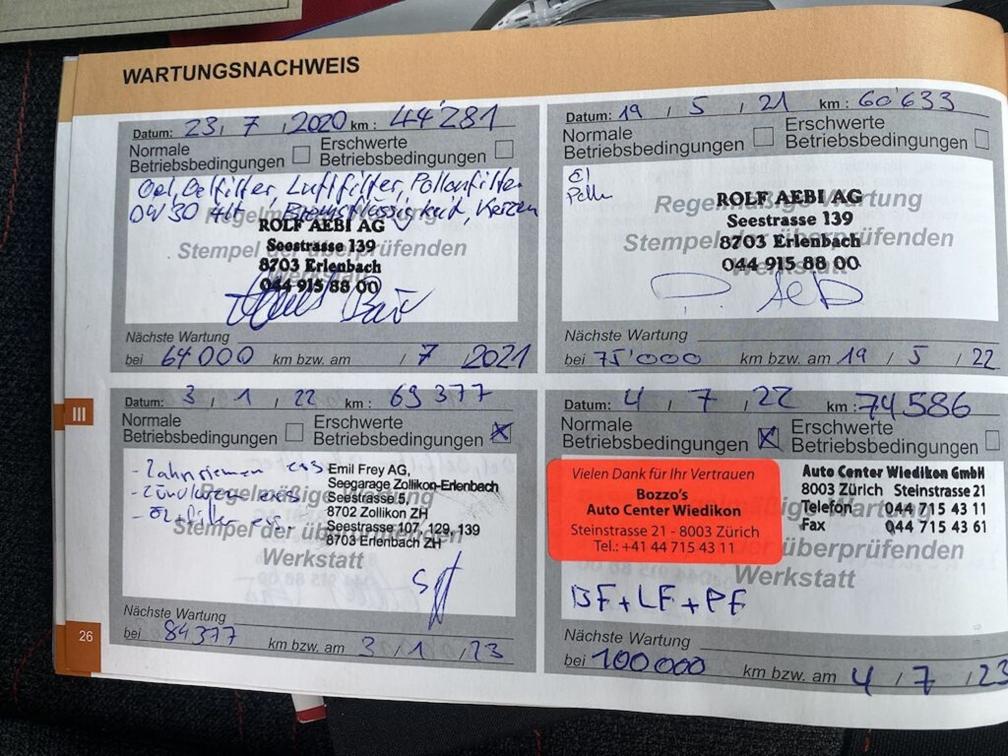 WARTUNGSNACHWEIS
Datum: 23, 7, 2020 km: 44'281
Normale Betriebsbedingungen
Erschwerte Betriebsbedingungen
Oel, Oelfilter, Luftfilter, Pollenfilter
0W30 4lt Bremsflüssigkeit, Kerzen
Regelmäßige Wartung
Stempel der überprüfenden
Werkstatt
ROLF AEBI AG
Seestrasse 139
8703 Erlenbach
044 915 88 00
Nächste Wartung
bei 64000 km bzw. am / 7 / 2021
Datum: 19 / 5 / 21 km: 60'633
Normale Betriebsbedingungen
Erschwerte Betriebsbedingungen
Regelmäßige Wartung
Stempel der überprüfenden
Werkstatt
ROLF AEBI AG
Seestrasse 139
8703 Erlenbach
044 915 88 00
Nächste Wartung
bei 75'000 km bzw. am 19 / 5 / 22
III
Datum: 3 / 1 / 22 km: 69377
Normale Betriebsbedingungen
Erschwerte Betriebsbedingungen
- Zahnriemen ers
- Zündkerzen ers
- Öl + filter ers.
Regelmäßige Wartung
Stempel der überprüfenden
Werkstatt
Emil Frey AG,
Seegarage Zollikon-Erlenbach
Seestrasse 5,
8702 Zollikon ZH
Seestrasse 107, 129, 139
8703 Erlenbach ZH
Nächste Wartung
bei 84377 km bzw. am 3 / 1 / 23
Datum: 4 / 7 / 22 km: 74586
Normale Betriebsbedingungen
Erschwerte Betriebsbedingungen
Vielen Dank für Ihr Vertrauen
Bozzo's
Auto Center Wiedikon
Steinstrasse 21 - 8003 Zürich
Tel.: +41 44 715 43 11
Auto Center Wiedikon GmbH
8003 Zürich Steinstrasse 21
Telefon 044 715 43 11
Fax 044 715 43 61
überprüfenden
Werkstatt
BF + LF + PF
Nächste Wartung
bei 100000 km bzw. am 4 / 7 / 23
26